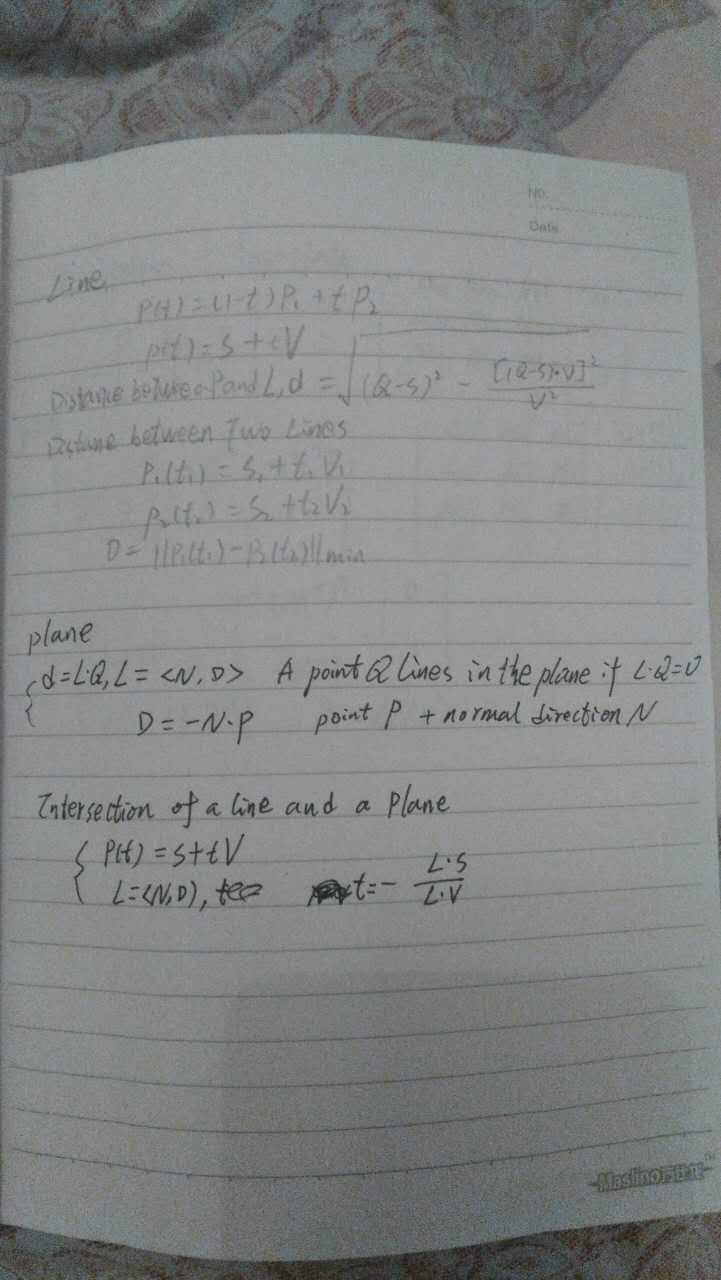 No.
Date
Line
P(t) = (1-t)P₁ + tP₂
p(t) = S + tV
Distance between P and L, d = √((Q-S)² - [(Q-S)·V]² / V²)
Distane between Two Lines
P₁(t₁) = S₁ + t₁V₁
P₂(t₂) = S₂ + t₂V₂
D = ||P₁(t₁) - P₂(t₂)||min
plane
{ d = L·Q, L = <N, D> A point Q lines in the plane if L·Q=0
D = -N·P point P + normal direction N
Intersection of a line and a Plane
{ P(t) = S + tV
L = <N, D), t = - L·S / L·V